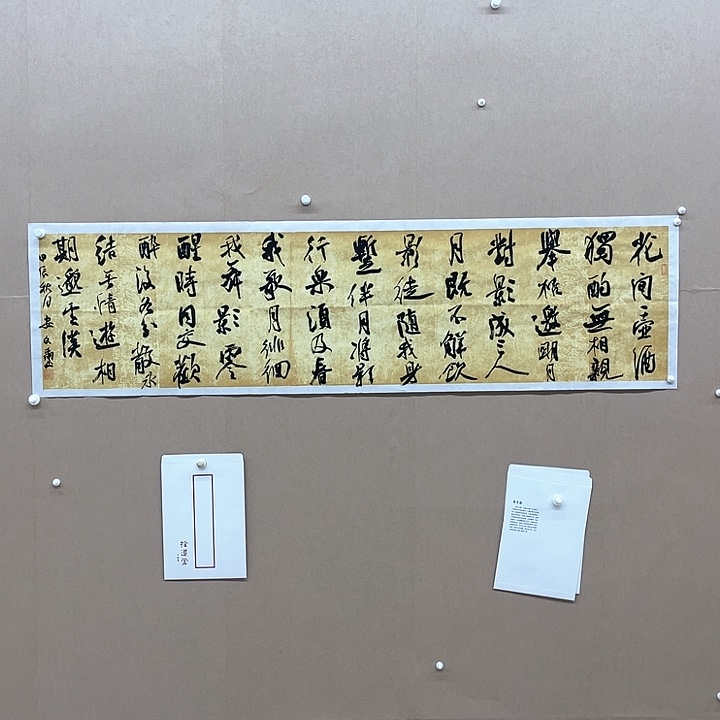 花間壺酒
獨酌無相親
舉杯邀明月
對影成三人
月既不解飲
影徒隨我身
暫伴月將影
行樂須及春
我歌月徘徊
我舞影零
醒時同交歡
醉後各分散永
結無情遊相
期邈雲漢
甲辰秋月